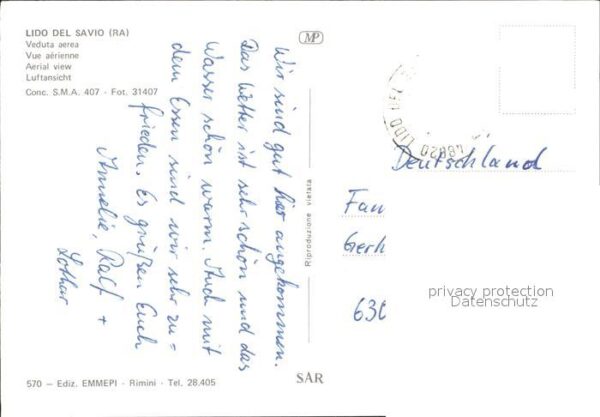 LIDO DEL SAVIO (RA)
Veduta aerea
Vue aérienne
Aerial view
Luftansicht
Conc. S.M.A. 407 - Fot. 31407
MP
Wir sind gut hier angekommen.
Das Wetter ist sehr schön und das
Wasser schön warm. Auch mit
dem Essen sind wir sehr zu=
frieden. Es grüßen Euch
Annelie, Ralf +
Lothar
Riproduzione vietata
48020 LIDO
Deutschland
Fam
Gerh
630
privacy protection
Datenschutz
570 - Ediz. EMMEPI - Rimini - Tel. 28.405
SAR